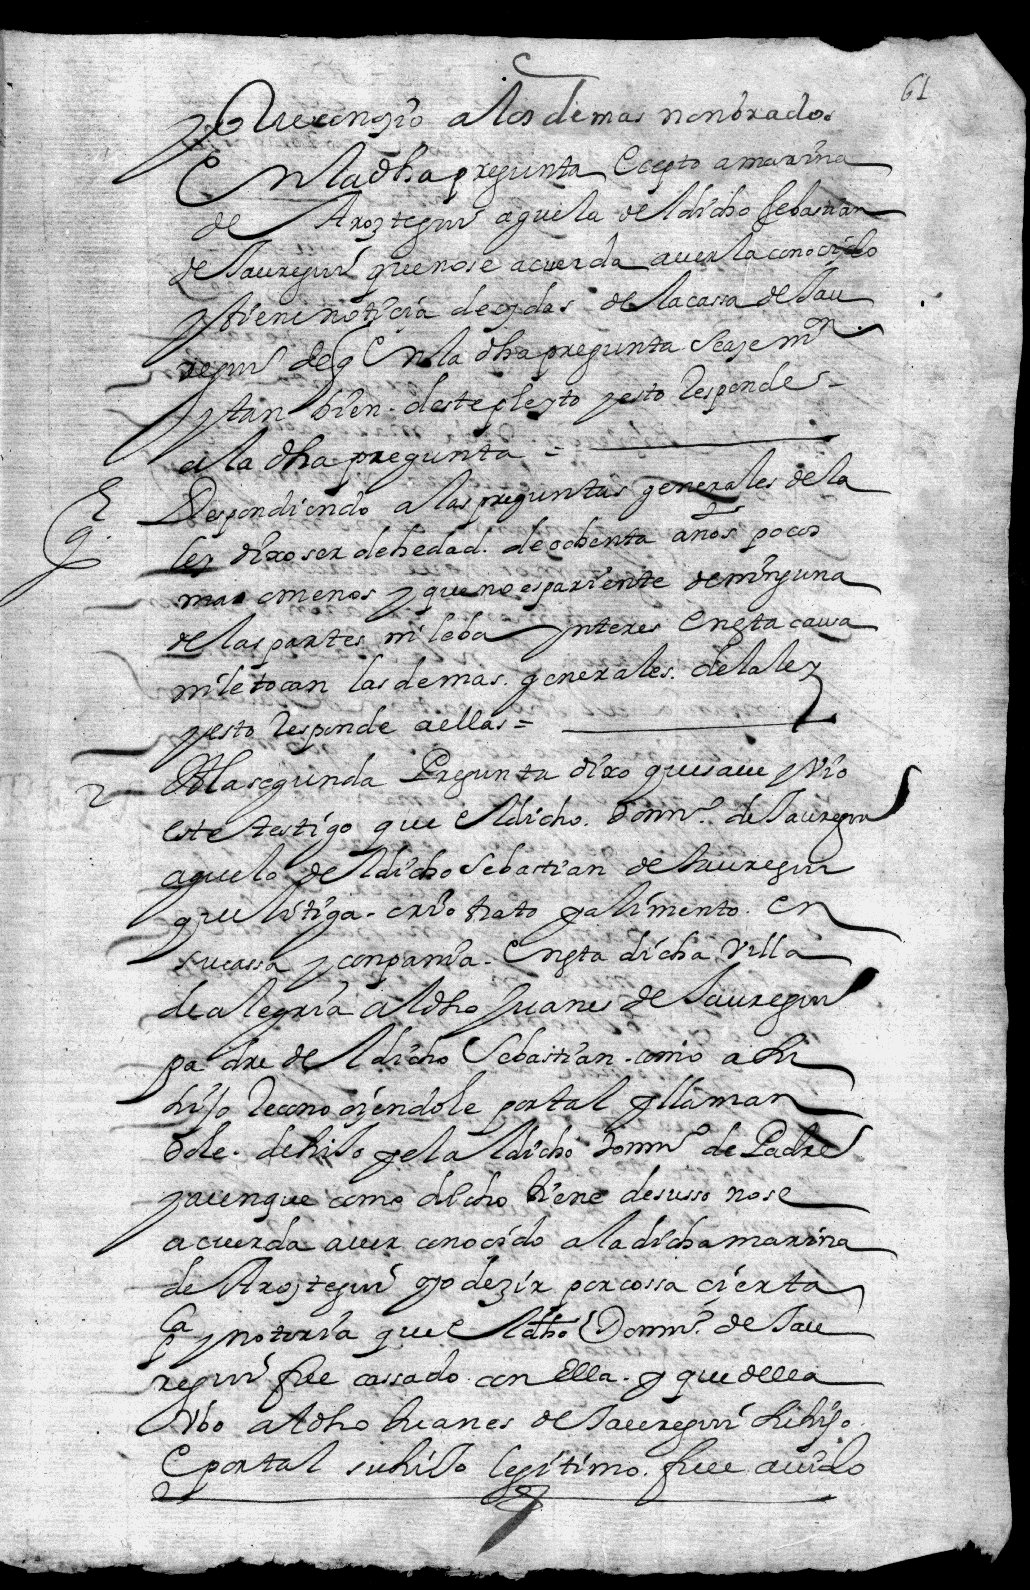 61
y que conozio a los demas nonbrados
En la dha pregunta Ecepto a marina
de Aroztegui aguela del dicho sebastian
de Jauregui que no se acuerda auerla conocido
y tiene noticia de oydas de la cassa de Jau
regui de q En la dha pregunta se aze mon
y tan bien deste pleyto y esto Responde
a la dha pregunta =
Respondiendo a las preguntas generales de la
ley dixo ser de hedad de ochenta años pocos
mas o menos y que no es pariente de ninguna
de las partes ni le ba ynteres En esta caussa
ni le tocan las demas generales de la ley
y esto Responde a ellas =
2 A la segunda Pregunta dixo que saue y vio
este testigo que El dicho Domin.º de Jauregui
aguelo del dicho Sebastian de Jauregui
que litiga crio trato y alimento En
su cassa y conpania En esta dicha Villa
de alegria al dho Juanes de Jauregui
padre del dicho Sebastian como a su
hijo Reconociendole por tal y llaman
dole de hijo y el al dicho Domin.º de Padre
y aunque como dicho tiene desusso no se
acuerda auer conocido a la dicha marina
de Aroztegui oyo dezir por cossa cierta
y notoria que El dho Domin.º de Jau
regui fue cassado con Ella y que della
Vbo al dho Juanes de Jauregui su hijo
E por tal su hijo legitimo fue auido